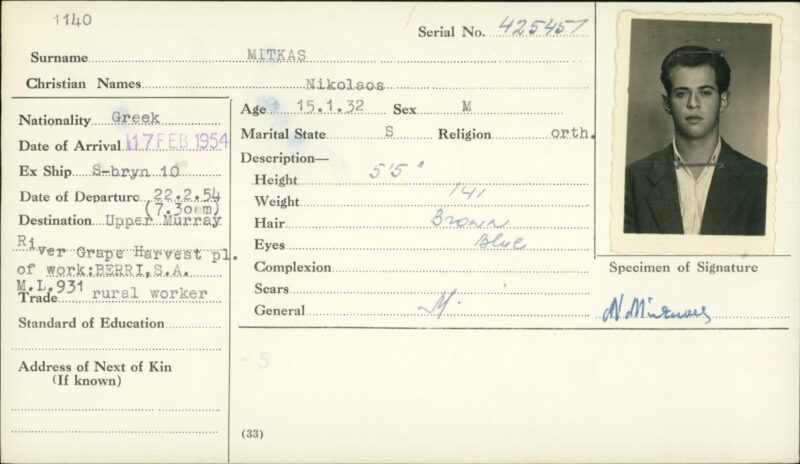 1140
Serial No. 425457
Surname MITKAS
Christian Names Nikolaos
Nationality Greek
Date of Arrival 17 FEB 1954
Ex Ship S-bryn 10
Date of Departure 22.2.54
(7.30am)
Destination Upper Murray
River Grape Harvest pl.
of work:BERRI,S.A.
M.L.931
Trade rural worker
Standard of Education
Address of Next of Kin
(If known)
Age 15.1.32 Sex M
Marital State S Religion orth.
Description—
Height 5'5"
Weight 141
Hair Brown
Eyes Blue
Complexion
Scars
General M.
- 5
(33)
Specimen of Signature